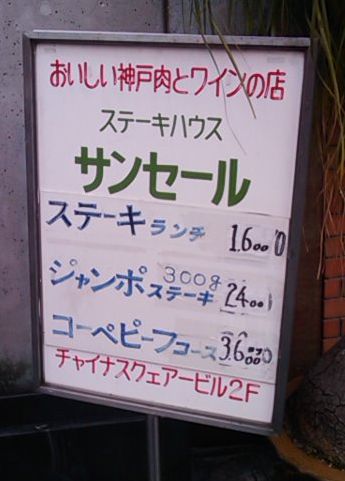 おいしい神戸肉とワインの店
ステーキハウス
サンセール
ステーキランチ 1.600
ジャンボ 300g ステーキ 2400
コーベビーフコース 3.600
チャイナスクェアービル2F